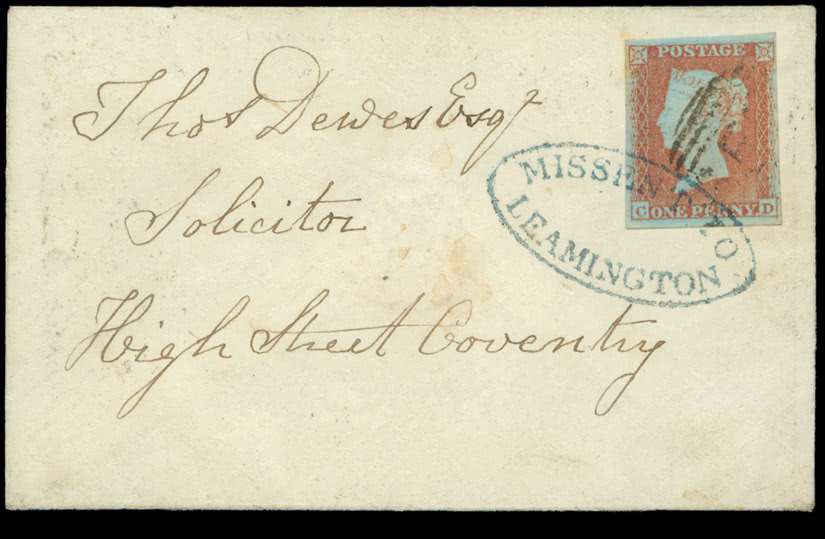 Thos Dewes Esqr
Solicitor
High Street Coventry
POSTAGE
C ONE PENNY D
MISSENT TO
LEAMINGTON